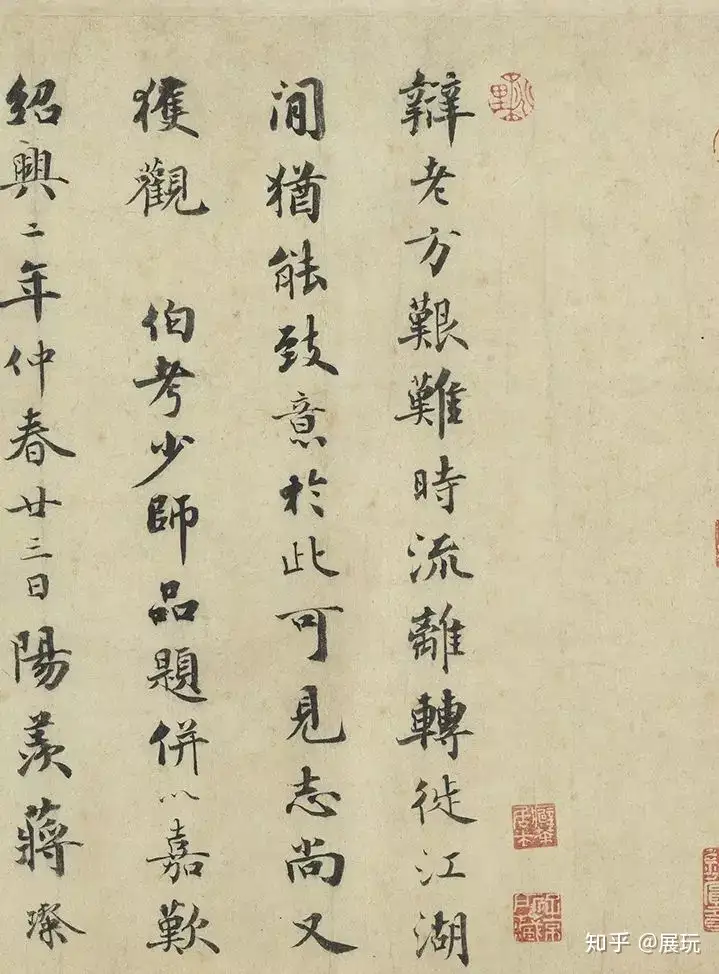 辯老方艱難時流離轉徙江湖
間猶能致意於此可見志尚又
獲觀 伯考少師品題併以嘉歎
紹興二年仲春廿三日陽羨蔣璨
知乎 @展玩